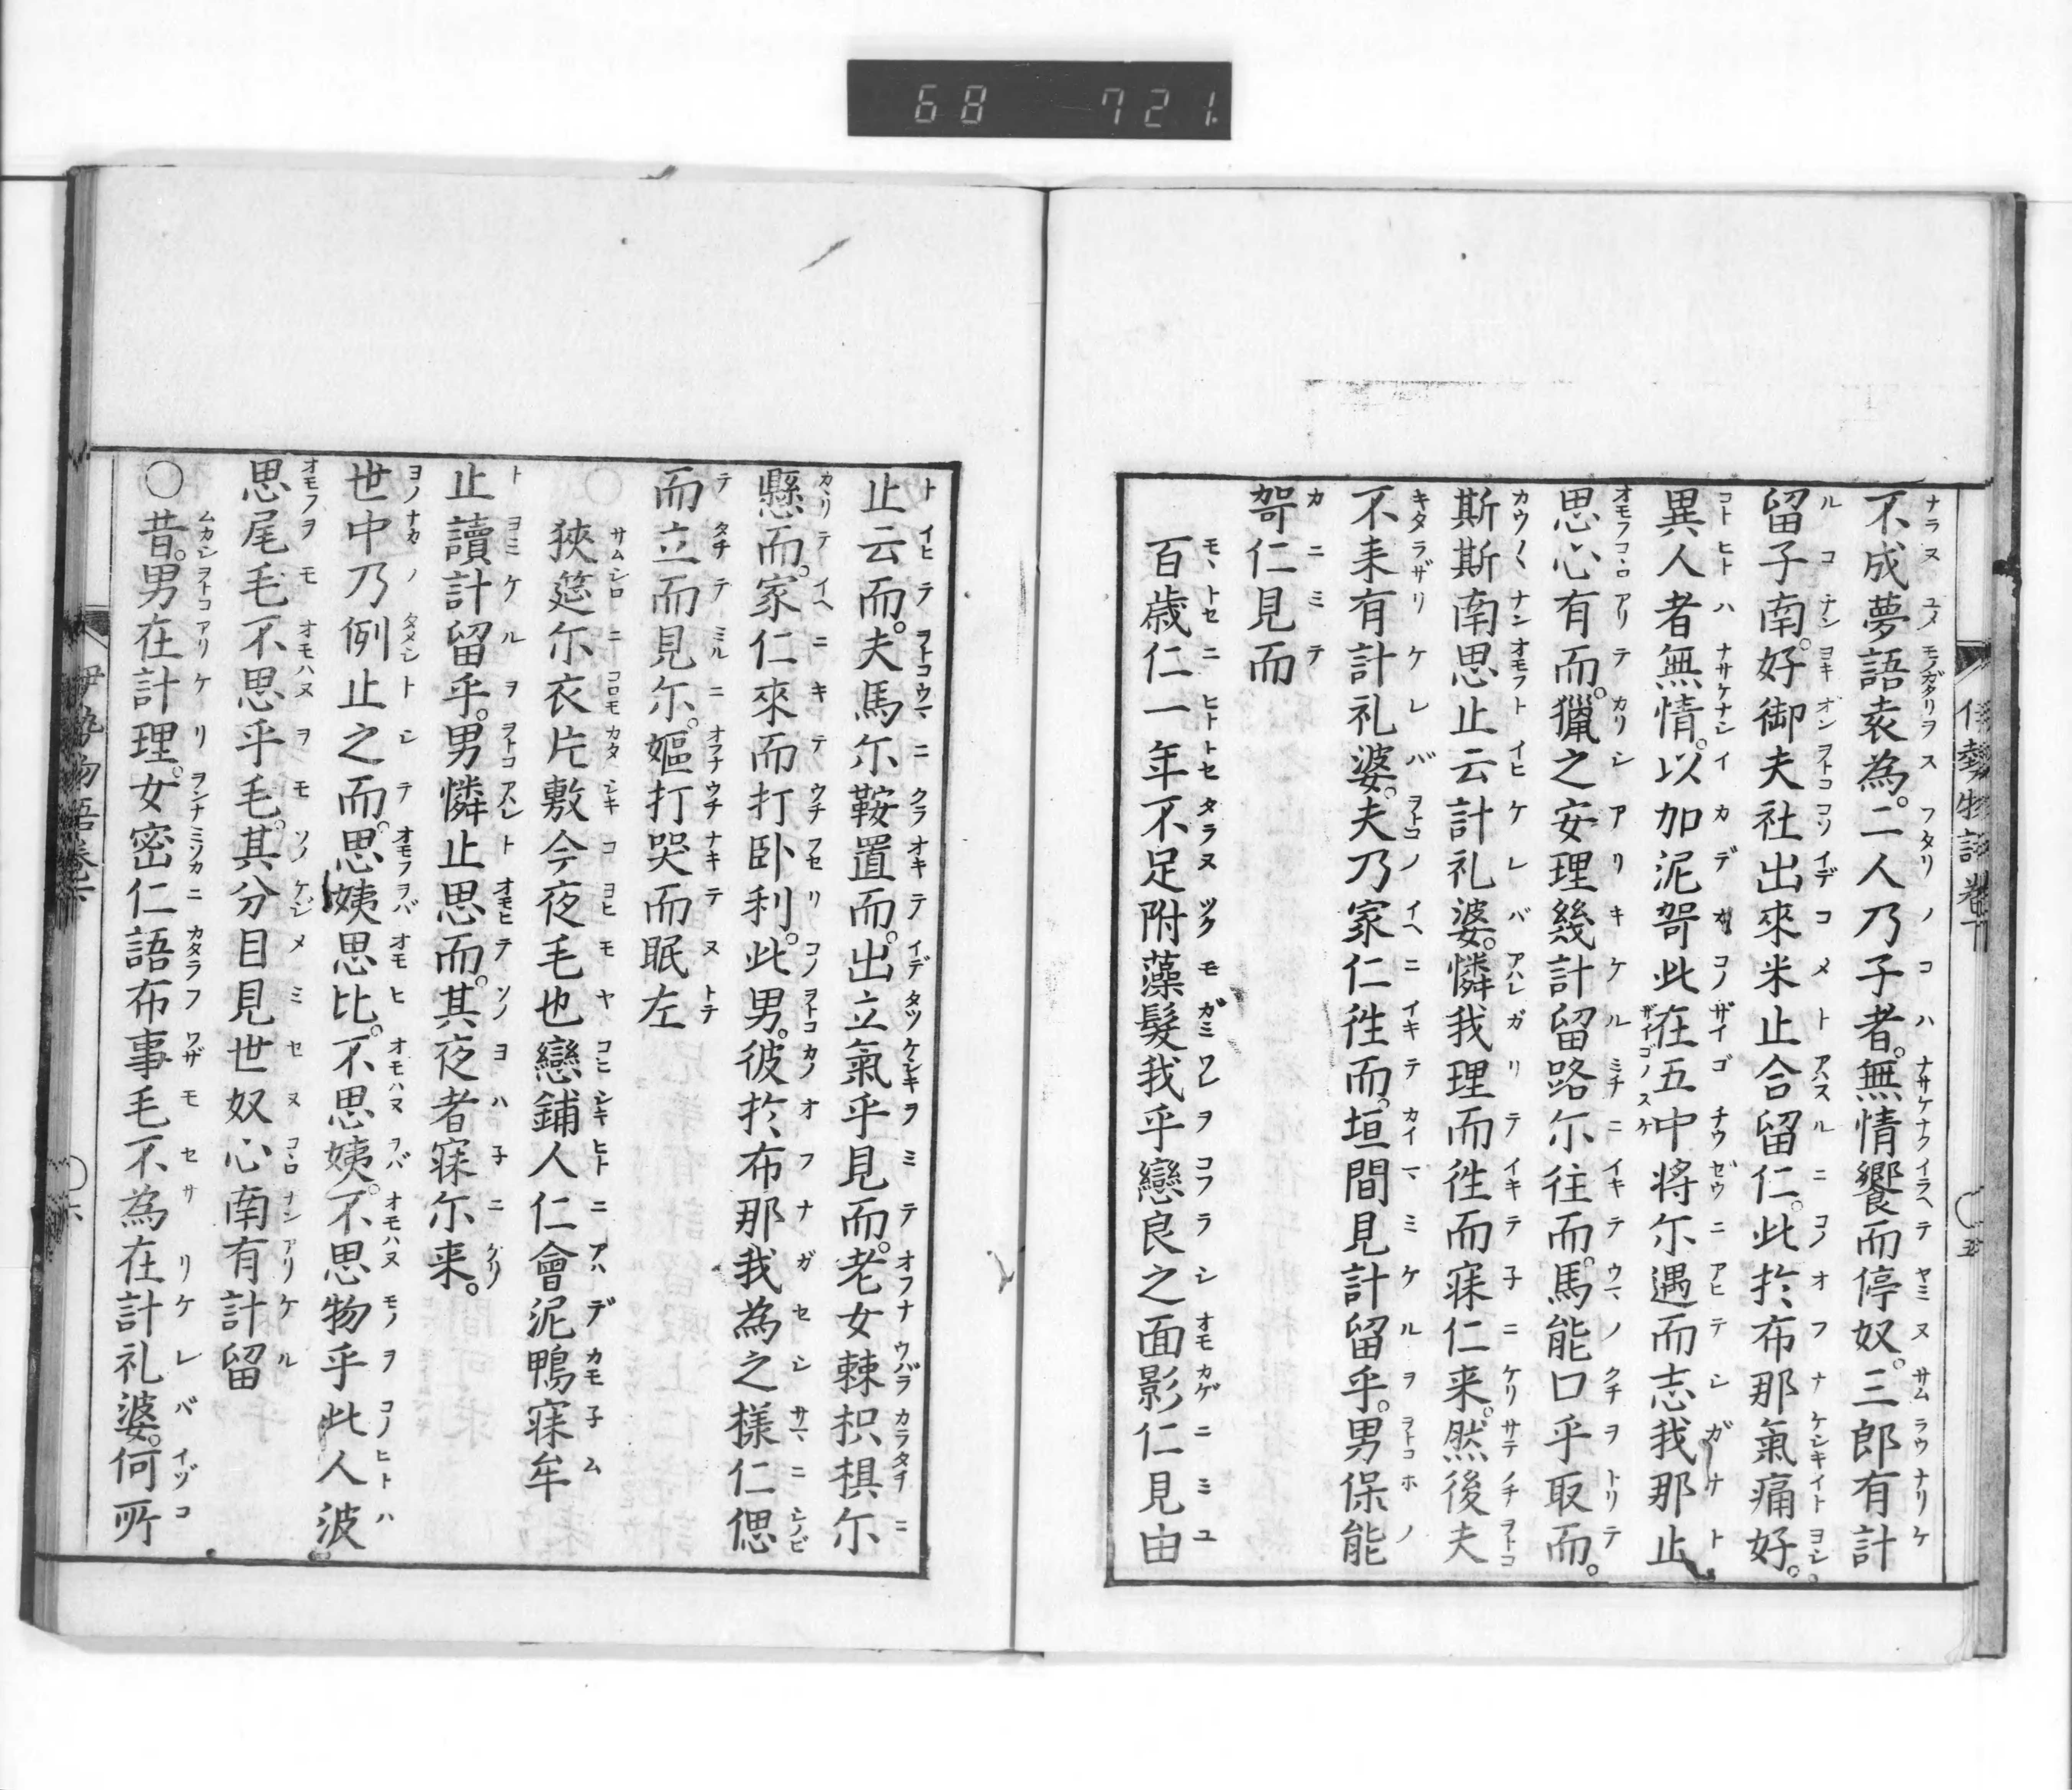 68 721.
伊勢物語卷下
不成夢語袁為。二人乃子者。無情饗而停奴。三郎有計
留子南。好御夫社出來米止合留仁。此於布那氣痛好。
異人者無情。以加泥哿此在五中将尓遇而志我那止
思心有而。獵之安理幾計留路尓往而。馬能口乎取而。
斯斯南思止云計礼婆。憐我理而徃而寐仁来。然後夫
不来有計礼婆。夫乃家仁徃而。垣間見計留乎。男保能
哿仁見而
百歳仁一年不足附藻髮我乎戀良之面影仁見由
五
止云而。夫馬尓鞍置而。出立氣乎見而。老女棘枳椇尓
懸而。家仁來而打卧利。此男。彼於布那我為之様仁偲
而立而見尓。嫗打哭而眠左
狹筵尓衣片敷今夜毛也戀鋪人仁會泥鴨寐牟
止讀計留乎。男憐止思而。其夜者寐尓来。
世中乃例止之而。思姨思比。不思姨。不思物乎此人波
思尾毛不思乎毛。其分目見世奴心南有計留
○昔。男在計理。女密仁語布事毛不為在計礼婆。何所
伊勢物語卷下
六